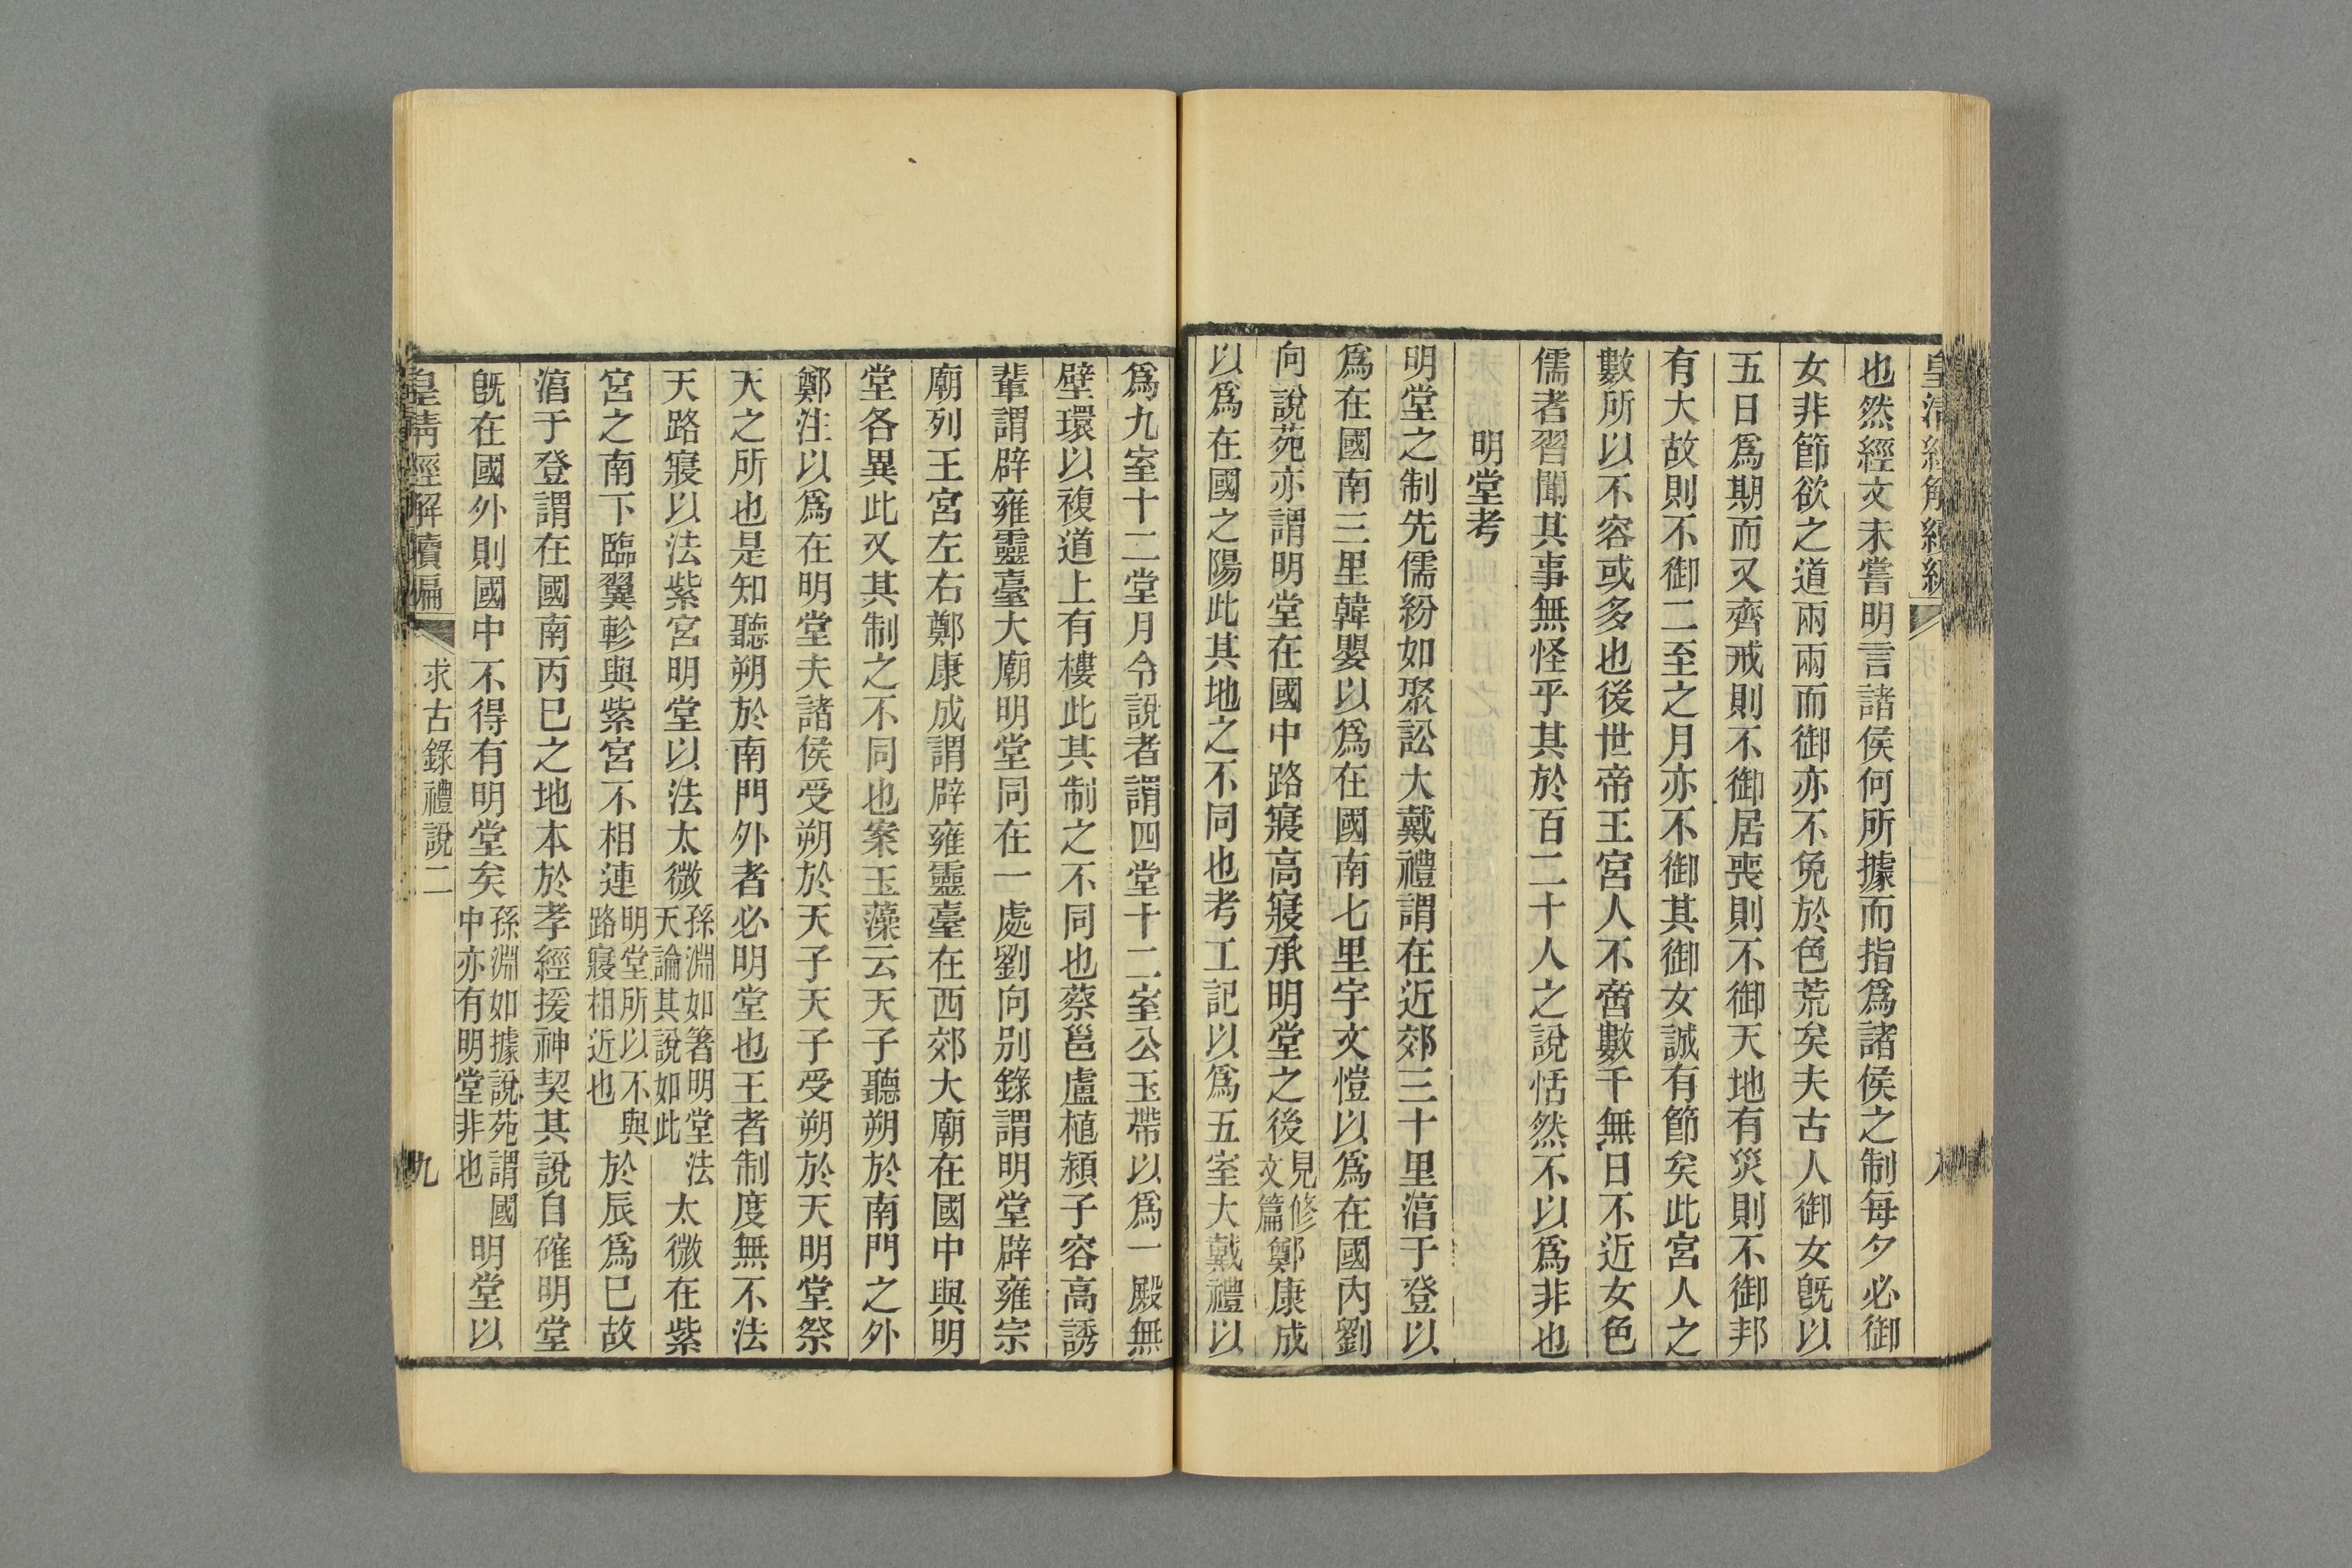 皇清經解續編
也然經文未嘗明言諸侯何所據而指爲諸侯之制每夕必御
女非節欲之道兩兩而御亦不免於色荒矣夫古人御女旣以
五日爲期而又齊戒則不御居喪則不御天地有災則不御邦
有大故則不御二至之月亦不御其御女誠有節矣此宮人之
數所以不容或多也後世帝王宮人不啻數千無日不近女色
儒者習聞其事無怪乎其於百二十人之說恬然不以爲非也
明堂考
明堂之制先儒紛如聚訟大戴禮謂在近郊三十里湻于登以
爲在國南三里韓嬰以爲在國南七里宇文愷以爲在國內劉
向說苑亦謂明堂在國中路寢高寢承明堂之後見修文篇鄭康成
以爲在國之陽此其地之不同也考工記以爲五室大戴禮以
爲九室十二堂月令說者謂四堂十二室公玉帶以爲一殿無
壁環以複道上有樓此其制之不同也蔡邕盧植潁子容高誘
輩謂辟雍靈臺大廟明堂同在一處劉向別錄謂明堂辟雍宗
廟列王宮左右鄭康成謂辟雍靈臺在西郊大廟在國中與明
堂各異此又其制之不同也案玉藻云天子聽朔於南門之外
鄭注以爲在明堂夫諸侯受朔於天子天子受朔於天明堂祭
天之所也是知聽朔於南門外者必明堂也王者制度無不法
天路寢以法紫宮明堂以法太微孫淵如著明堂法天論其說如此太微在紫
宮之南下臨翼軫與紫宮不相連明堂所以不與路寢相近也於辰爲巳故
湻于登謂在國南丙巳之地本於孝經援神契其說自確明堂
旣在國外則國中不得有明堂矣孫淵如據說苑謂國中亦有明堂非也明堂以
皇清經解續編
求古錄禮說二
九